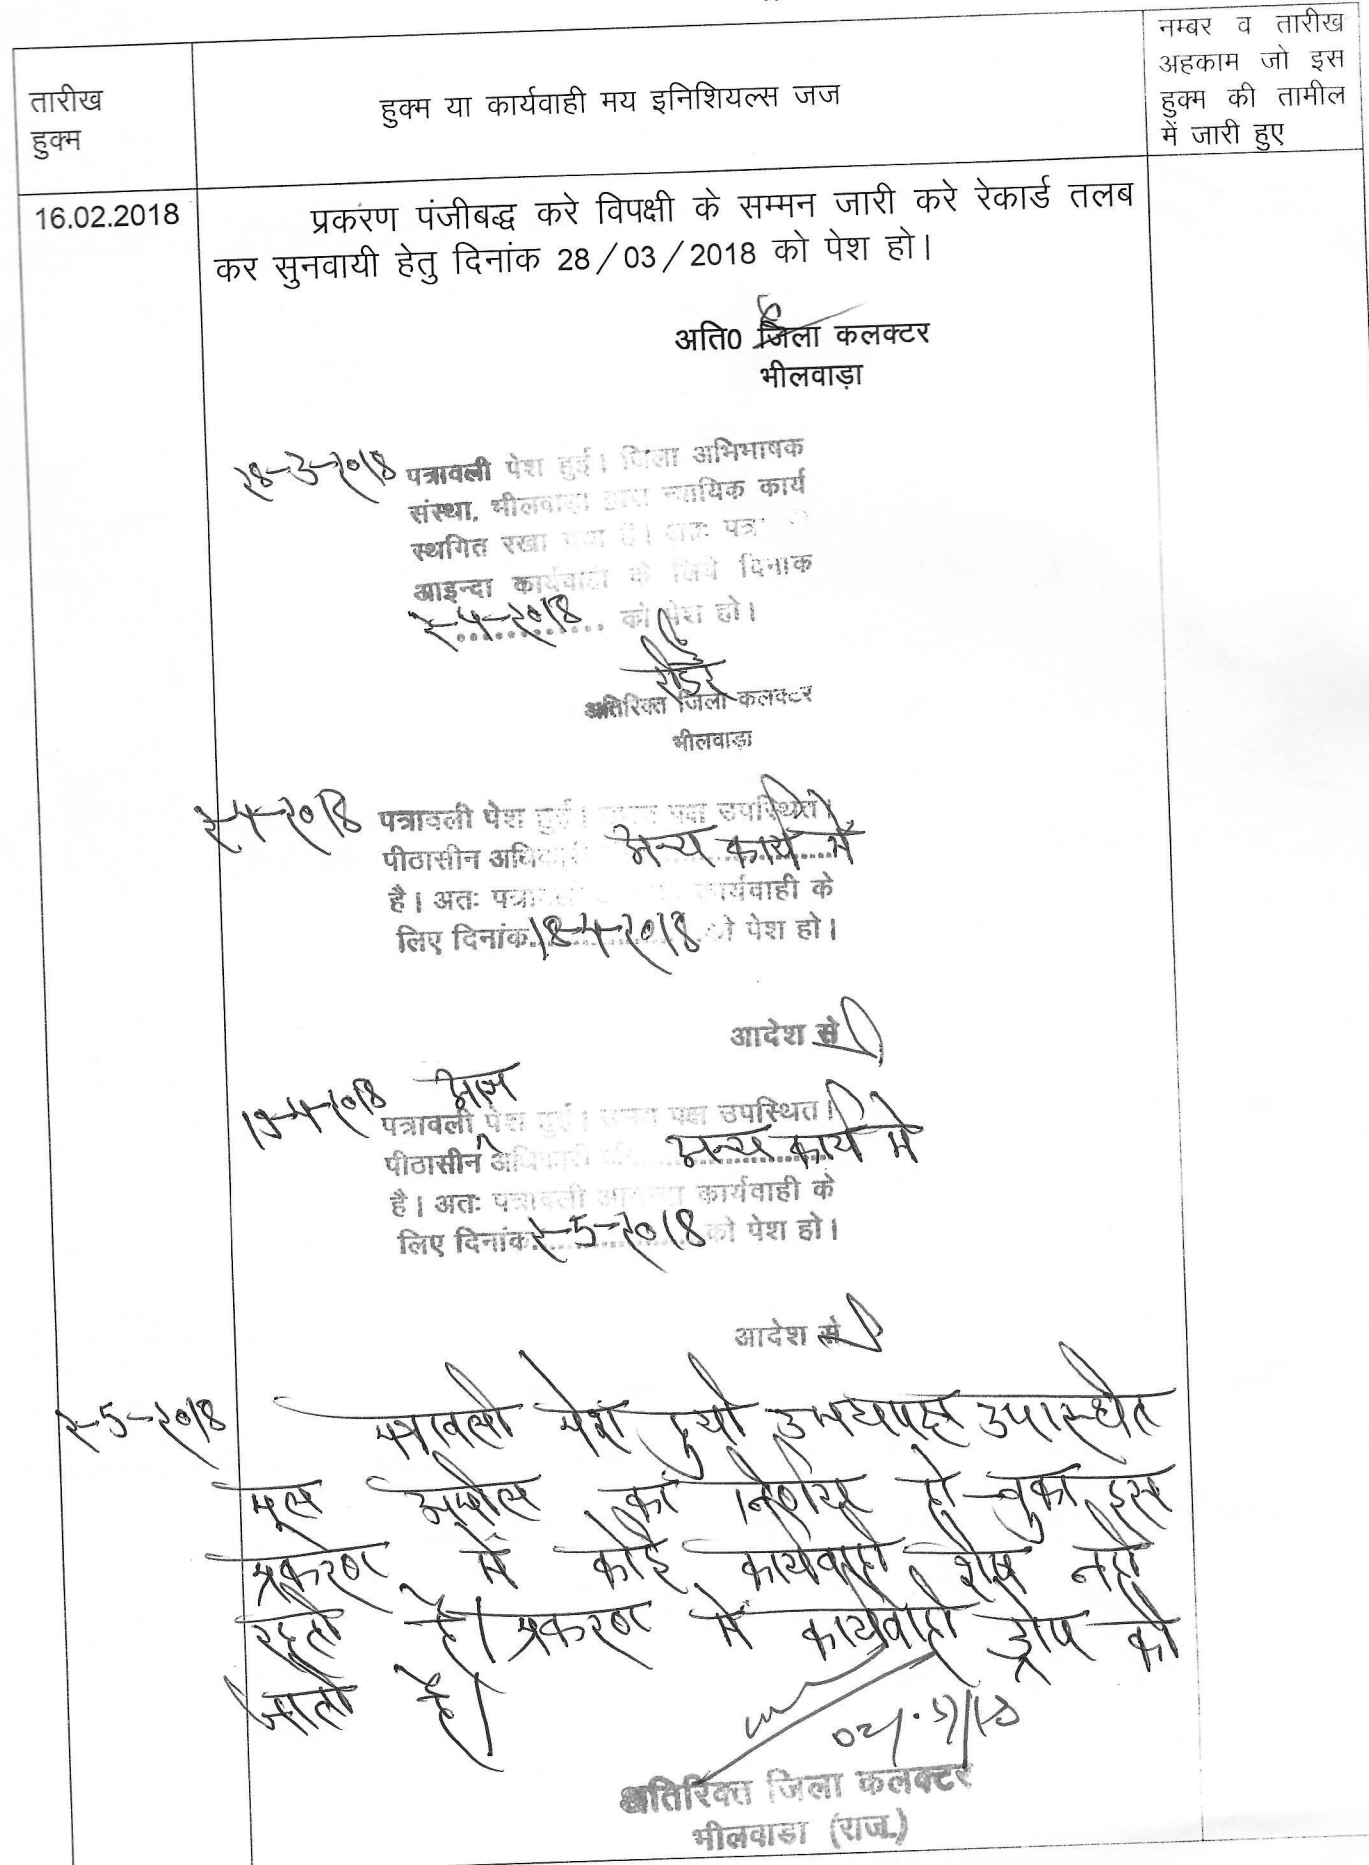 तारीख
हुक्म
हुक्म या कार्यवाही मय इनिशियल्स जज
नम्बर व तारीख
अहकाम जो इस
हुक्म की तामील
में जारी हुए
16.02.2018
प्रकरण पंजीबद्ध करे विपक्षी के सम्मन जारी करे रेकार्ड तलब
कर सुनवायी हेतु दिनांक 28/03/2018 को पेश हो।
अति0 जिला कलक्टर
भीलवाड़ा
२8-3-२०18 पत्रावली पेश हुई। जिला अभिभाषक
संस्था, भीलवाड़ा द्वारा न्यायिक कार्य
स्थगित रखा गया है। अतः
आइन्दा कार्यवाही के लिये दिनाक
को पेश हो।
रीडर
अतिरिक्त जिला कलक्टर
भीलवाड़ा
पत्रावली पेश हुई। पक्ष उपस्थित।
पीठासीन अन्य कार्य में
है। अतः कार्यवाही के
लिए दिनांक 18-4-२०18 को पेश हो।
आदेश से
पत्रावली पेश हुई। उभय पक्ष उपस्थित।
पीठासीन अधिकारी अन्य कार्य में
है। अतः पत्रावली कार्यवाही के
लिए दिनांक २-5-२०18 को पेश हो।
आदेश से
२-5-२०18 पत्रावली पेश हुयी उभयपक्ष उपस्थित
मूल अपील का निर्णय हो चुका इस
प्रकरण में कोई कार्यवाही शेष नही
रहती है। प्रकरण में कार्यवाही ड्रोप की
जाती है।
अतिरिक्त जिला कलक्टर
भीलवाडा (राज.)